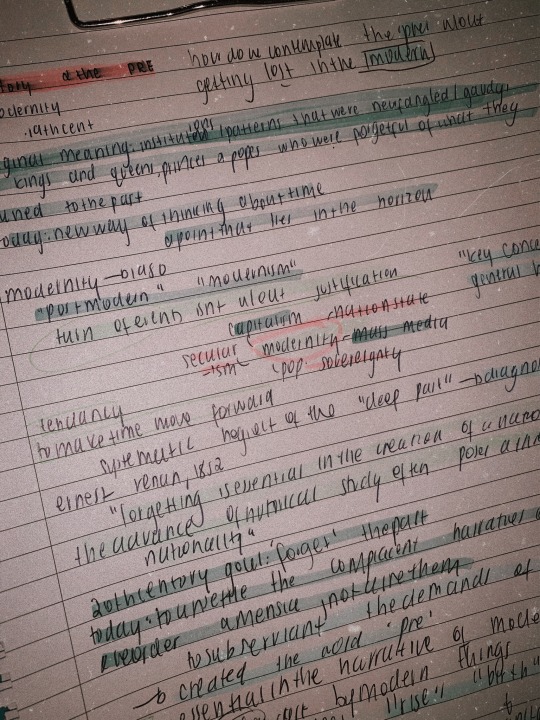 how do we contemplate the "pre" w/out
tory of the PRE getting lost in the modern
odernity
19th cent
ginal meaning: institutions / patterns that were newfangled / gaudy
kings and queens, princes & popes who were forgetful of what they
to the past
oday: new way of thinking about time
a point that lies in the horizon
modernity
"postmodern" "modernism" "key conce
turn of events isnt w/out justification general
capitalism nation state
secular modernity - mass media
-ism "pop" sovereignty
tendancy
to make time move forward
systematic neglect of the "deep past"
ernest renan, 1882
"forgetting is essential in the creation of a
the advance of historical study often poses a
nationality"
20th century goal: 'forges' the past
today: to unsettle the complacent narratives
reorder amensia not cure them
to subserviant the demands of
created the 'pre'
essential in the narrative of mode
by modern things
'rise'